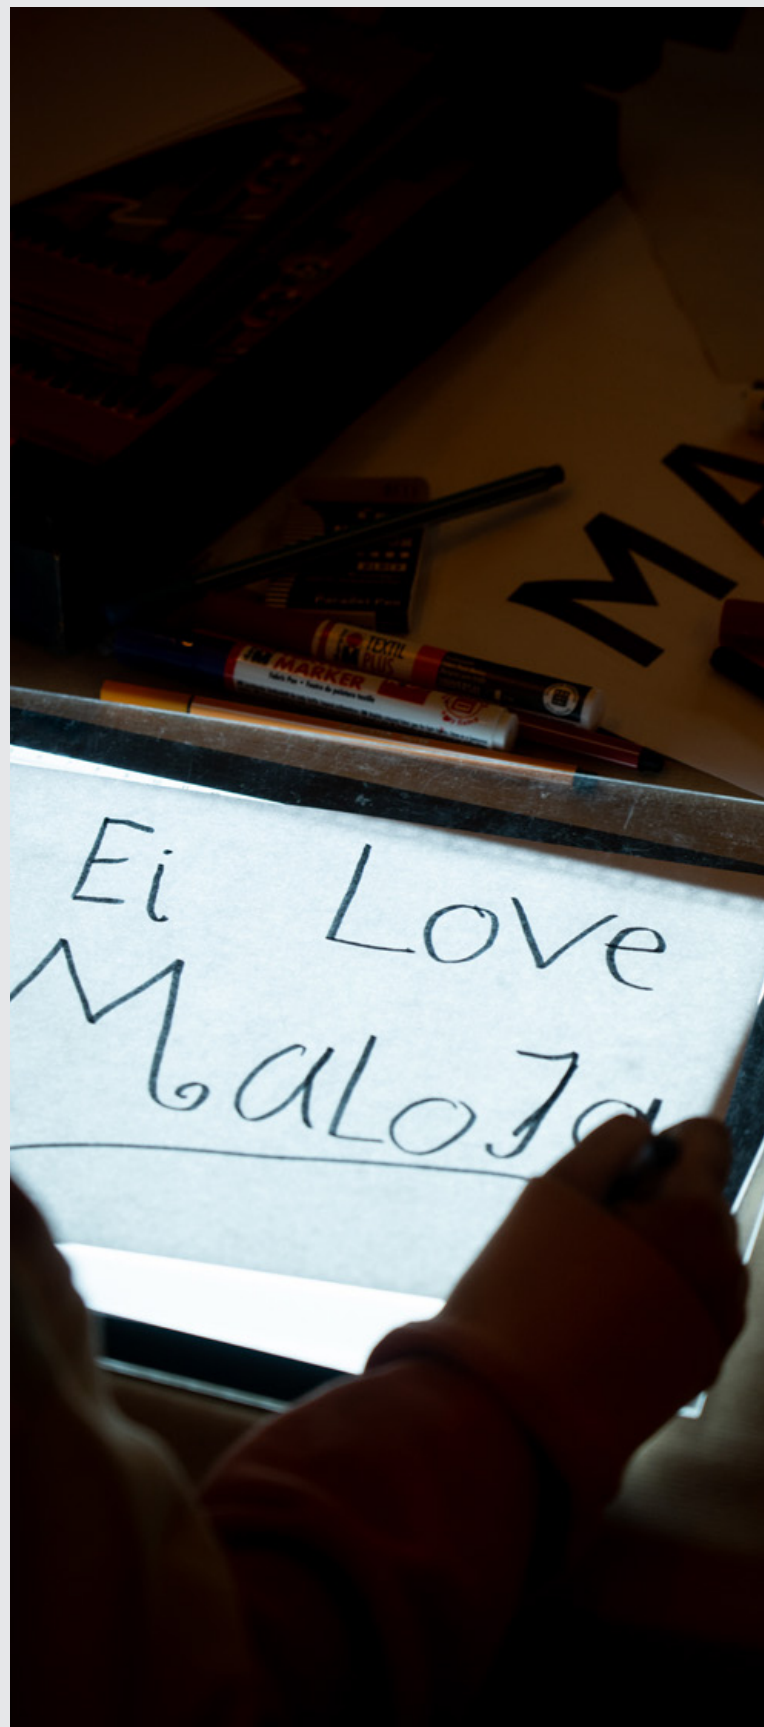 MA
TEXTIL
PLUS
MARKER
Ei Love
MaLoJa